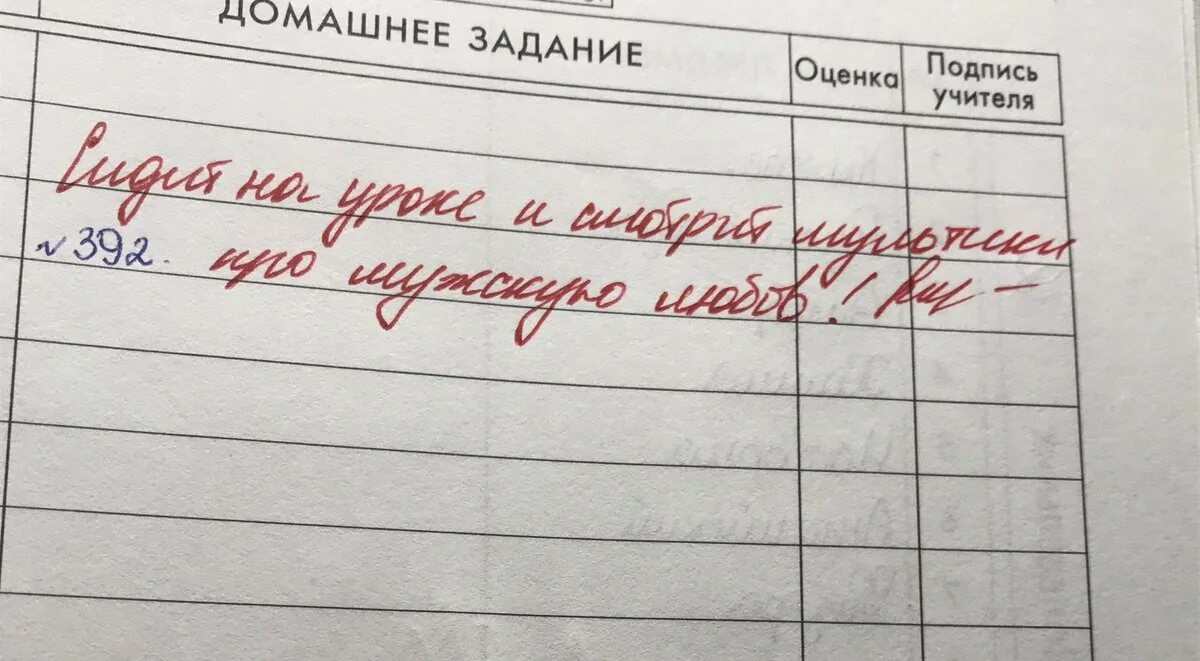 ДОМАШНЕЕ ЗАДАНИЕ
Оценка
Подпись
учителя
Сидит на уроке и смотрит мультики
№ 392. про мужскую любов!